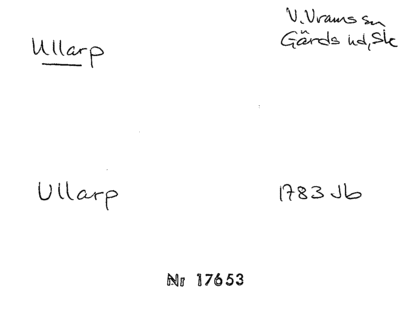 Ullarp
V. Vrams sn
Gärds hd, Sk
Ullarp
1783 Jb
Nr 17653